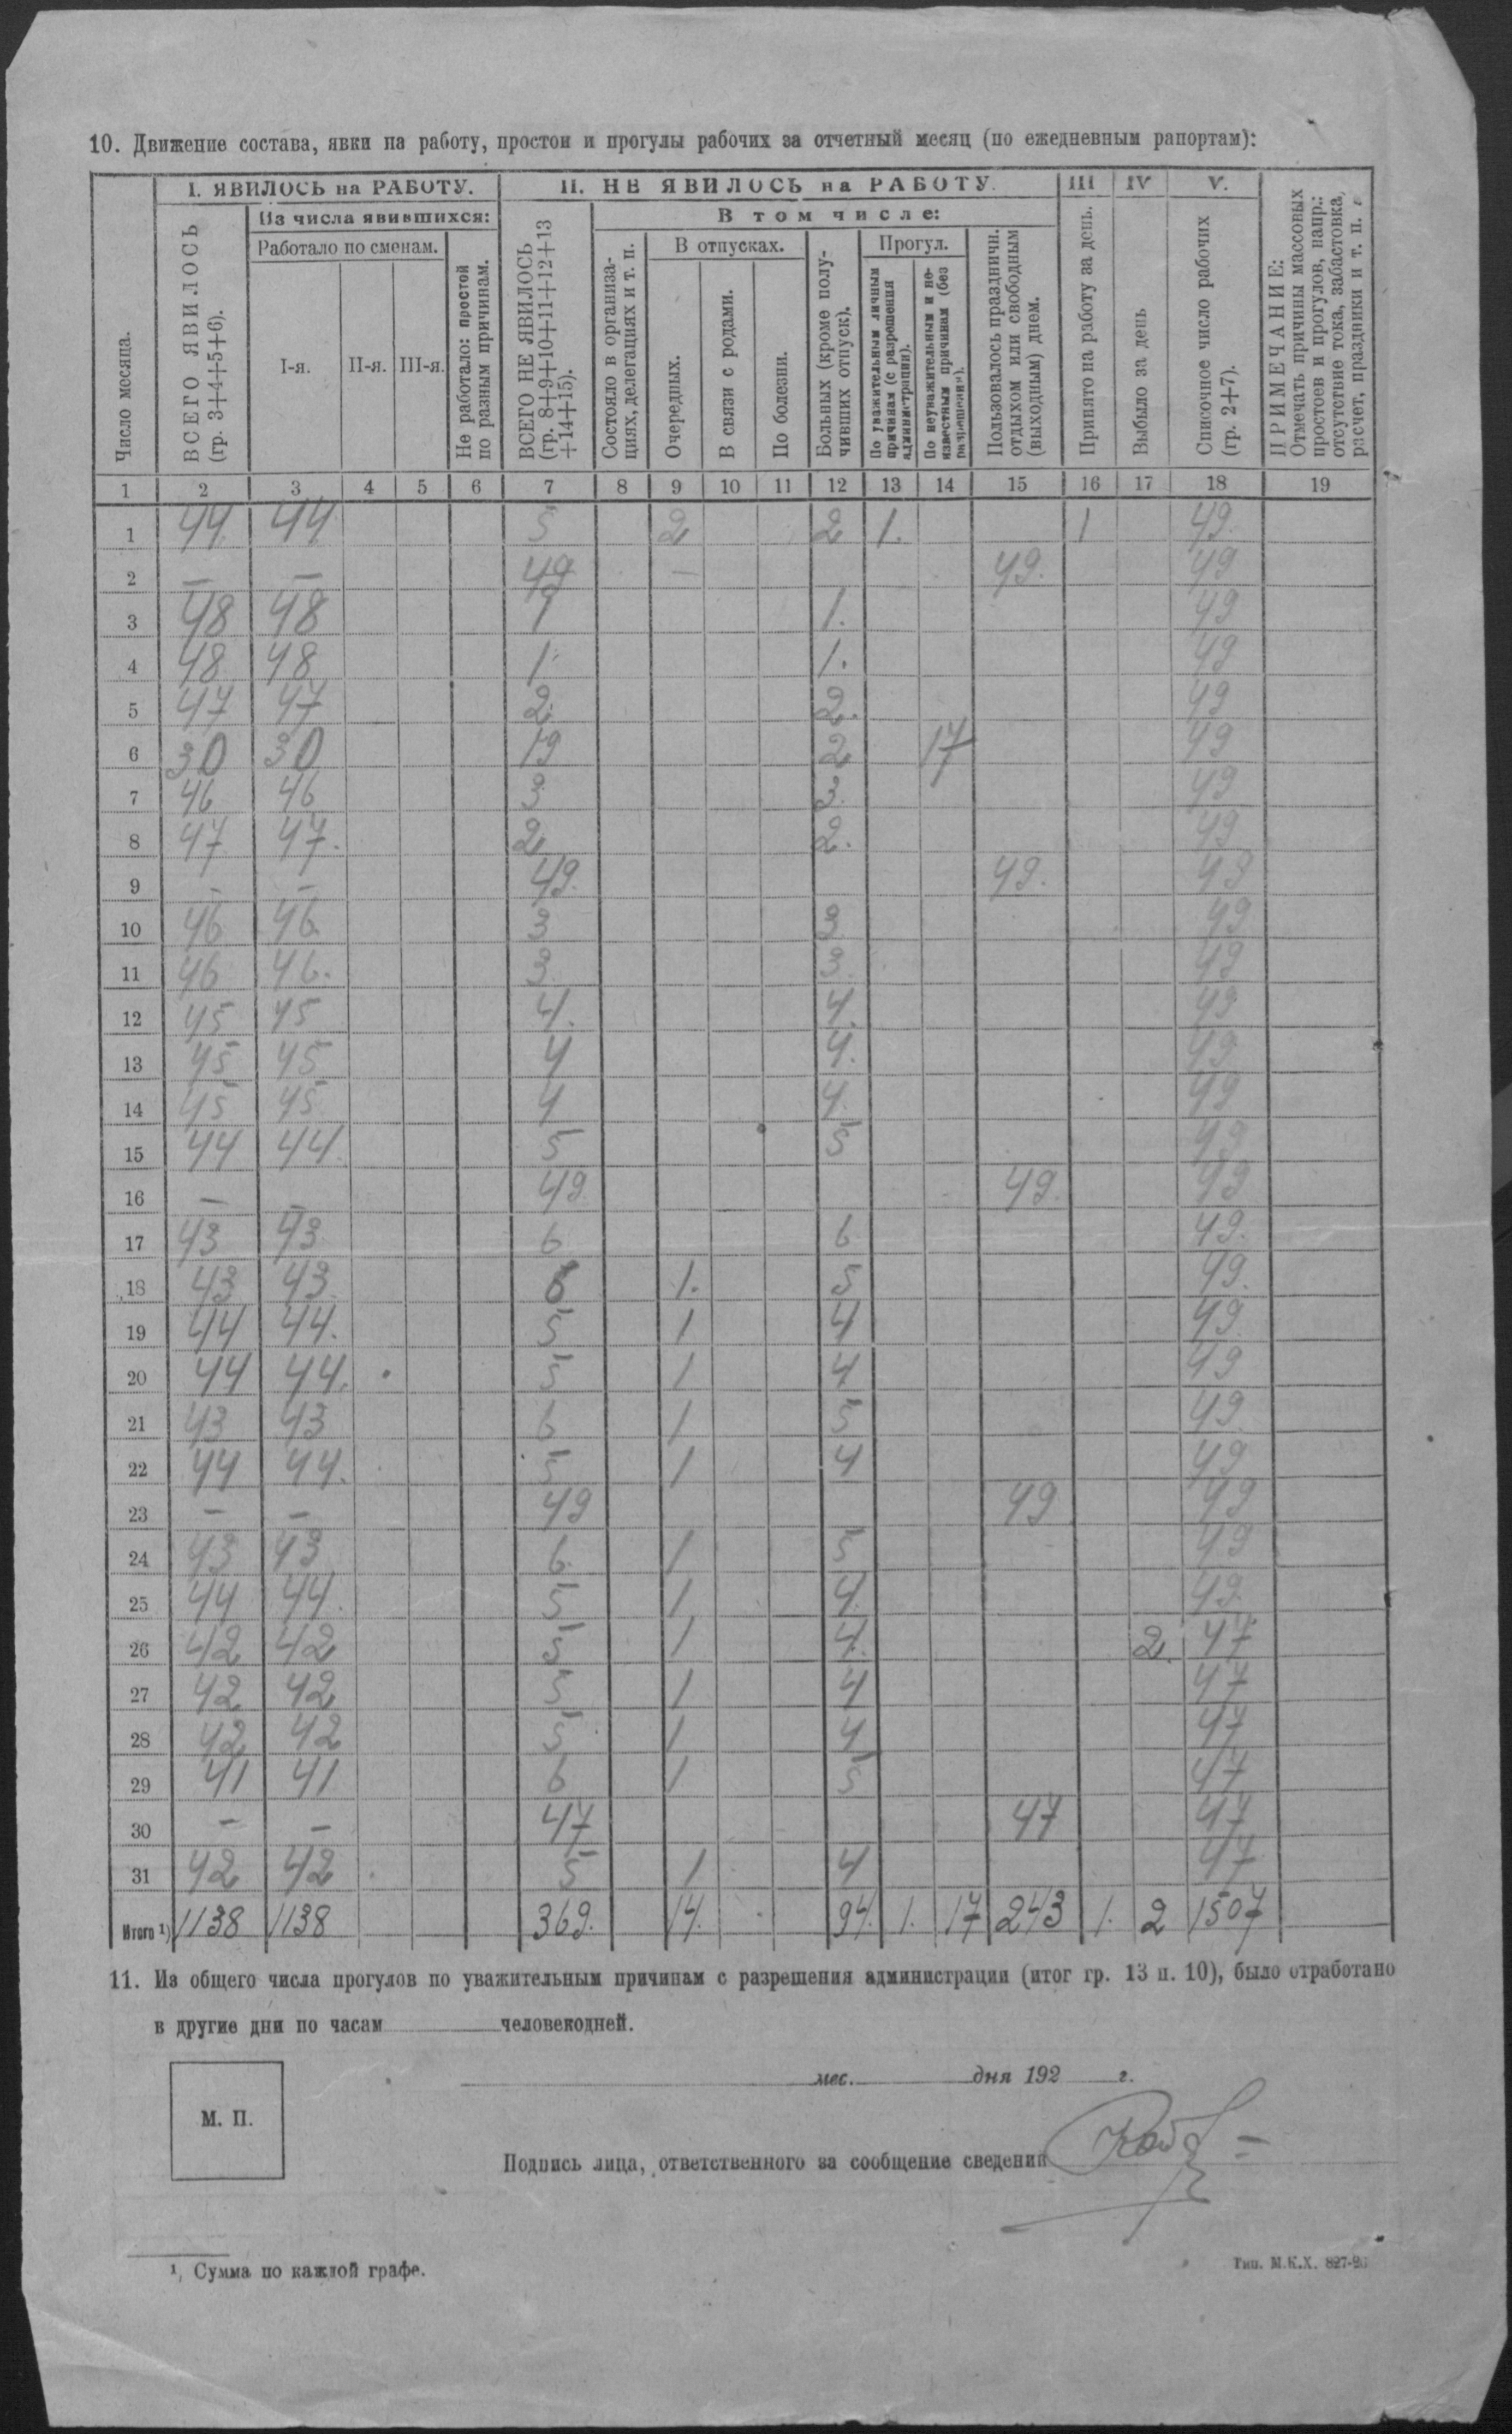 10. Движение состава, явки на работу, простои и прогулы рабочих за отчетный месяц (по ежедневным рапортам):
Число месяца.
I. ЯВИЛОСЬ на РАБОТУ.
ВСЕГО ЯВИЛОСЬ (гр. 3+4+5+6).
Из числа явившихся:
Работало по сменам.
I-я. II-я. III-я.
Не работало: простой по разным причинам.
II. НЕ ЯВИЛОСЬ на РАБОТУ.
ВСЕГО НЕ ЯВИЛОСЬ (гр. 8+9+10+11+12+13+14+15).
В том числе:
Состояло в организациях, делегациях и т. п.
В отпусках.
Очередных.
В связи с родами.
По болезни.
Больных (кроме получивших отпуск).
Прогул.
По уважительным личным причинам (с разрешения администрации).
По неуважительным и неизвестным причинам (без разрешения).
Пользовалось праздничн. отдыхом или свободным (выходным) днем.
III Принято на работу за день.
IV Выбыло за день
V. Списочное число рабочих (гр. 2+7).
ПРИМЕЧАНИЕ:
Отмечать причины массовых простоев и прогулов, напр.: отсутствие тока, забастовка, расчет, праздники и т. п.
1 2 3 4 5 6 7 8 9 10 11 12 13 14 15 16 17 18 19
1 44 44 5 2 2 1. 1 49.
2 — — 49 — 49. 49
3 48 48 1 1. 49
4 48 48 1 1. 49
5 47 47 2. 2. 49
6 30 30 19 2 17 49
7 46 46 3 3. 49
8 47 47. 2 2. 49
9 - - 49. 49. 49
10 46 46. 3 3 49
11 46 46. 3. 3. 49
12 45 45 4. 4. 49
13 45 45 4 4. 49
14 45 45 4 4. 49
15 44 44. 5 5 49
16 — — 49. 49. 49
17 43 43 6 6 49.
18 43 43. 6 1. 5 49.
19 44 44. 5 1 4 49.
20 44 44. 5 1 4 49
21 43 43 6 1 5 49
22 44 44. 5 1 4 49
23 — — 49 49 49
24 43 43 6. 1 5 49
25 44 44. 5 1 4. 49.
26 42 42 5 1 4. 2. 47
27 42 42 5 1 4 47
28 42 42 5 1 4 47
29 41 41 6 1 5 47
30 — — 47 47 47
31 42 42 5 1 4 47
Итого ¹) 1138 1138 369. 14. 94. 1. 17 243 1. 2 1507
11. Из общего числа прогулов по уважительным причинам с разрешения администрации (итог гр. 13 п. 10), было отработано
в другие дни по часам человекодней.
мес. дня 192 г.
М. П.
Подпись лица, ответственного за сообщение сведений
¹) Сумма по каждой графе.
Тип. М.К.Х. 827-26